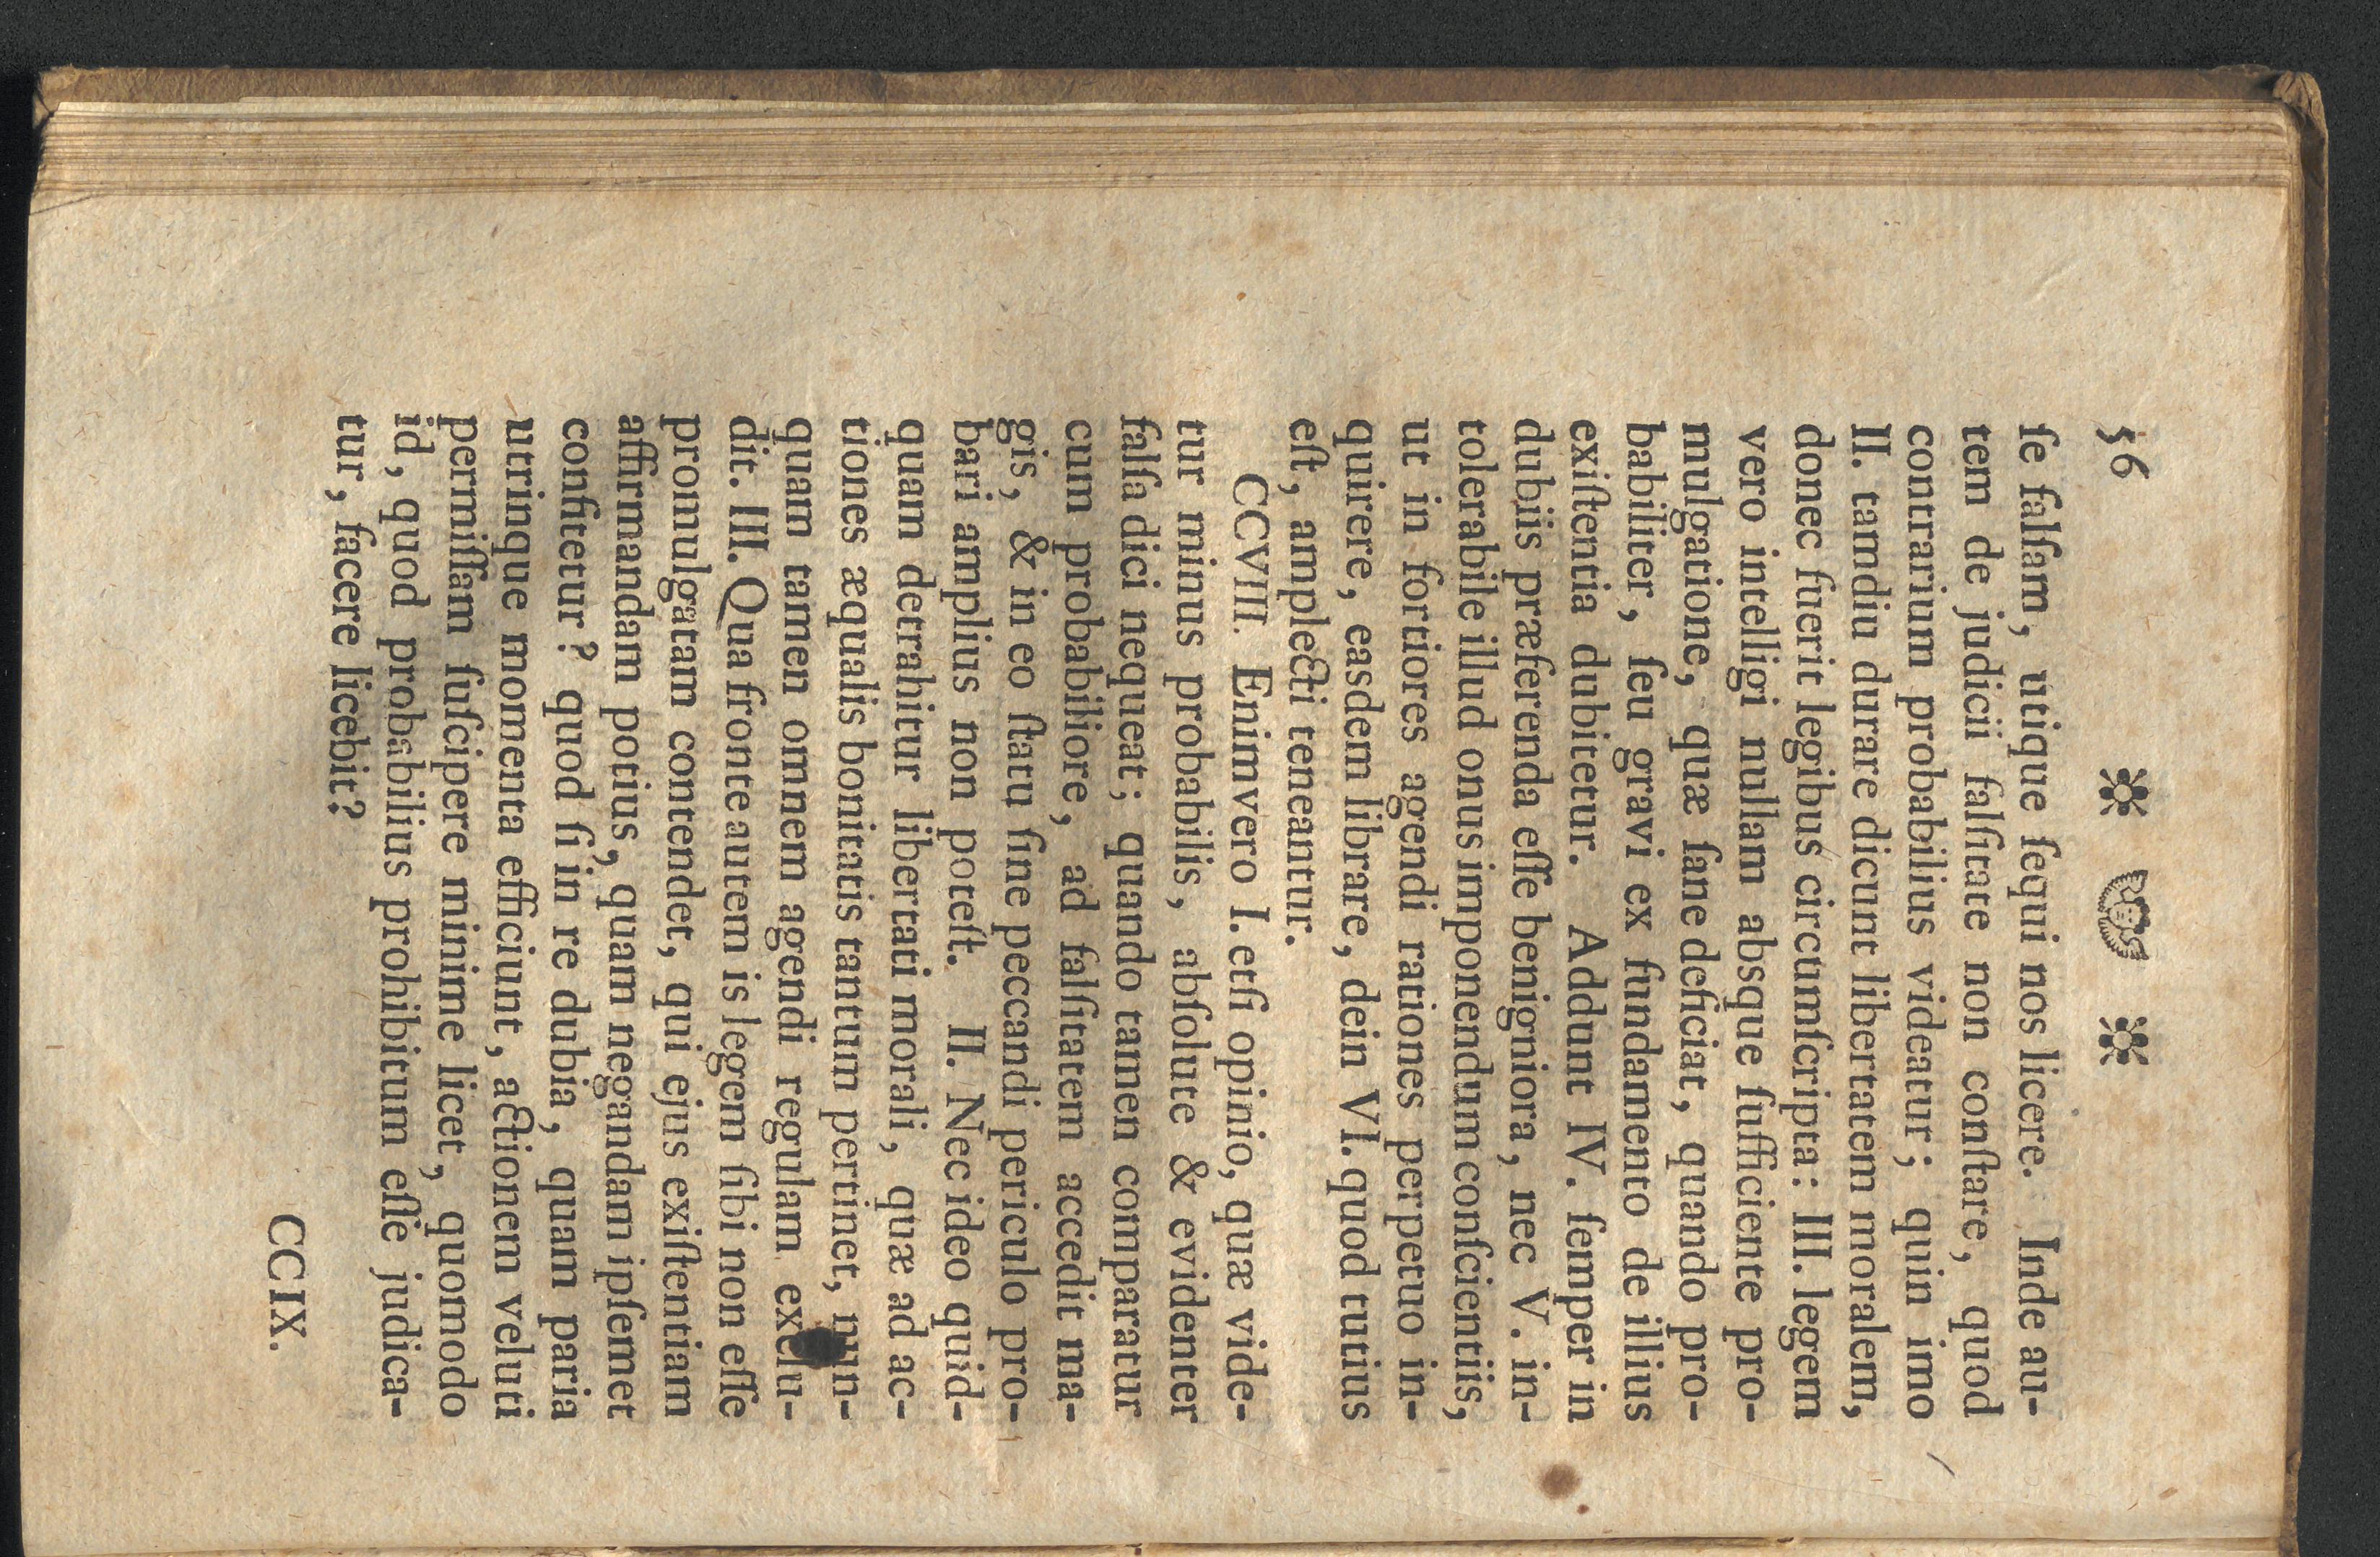 56
ſe falſam, utique ſequi nos licere. Inde au-
tem de judicii falſitate non conſtare, quod
contrarium probabilius videatur; quin imo
II. tamdiu durare dicunt libertatem moralem,
donec fuerit legibus circumſcripta: III. legem
vero intelligi nullam absque ſufficiente pro-
mulgatione, quæ ſane deficiat, quando pro-
babiliter, ſeu gravi ex fundamento de illius
exiſtentia dubitetur. Addunt IV. ſemper in
dubiis præferenda eſſe benigniora, nec V. in-
tolerabile illud onus imponendum conſcientiis,
ut in fortiores agendi rationes perpetuo in-
quirere, easdem librare, dein VI. quod tutius
eſt, amplecti teneantur.
CCVIII. Enimvero I. etſi opinio, quæ vide-
tur minus probabilis, abſolute & evidenter
falſa dici nequeat; quando tamen comparatur
cum probabiliore, ad falſitatem accedit ma-
gis, & in eo ſtatu ſine peccandi periculo pro-
bari amplius non poteſt. II. Nec ideo quid-
quam detrahitur libertati morali, quæ ad ac-
tiones æqualis bonitatis tantum pertinet, nun-
quam tamen omnem agendi regulam exclu-
dit. III. Qua fronte autem is legem ſibi non eſſe
promulgatam contendet, qui ejus exiſtentiam
affirmandam potius, quam negandam ipſemet
confitetur? quod ſi in re dubia, quam paria
utrinque momenta efficiunt, actionem veluti
permiſſam ſuſcipere minime licet, quomodo
id, quod probabilius prohibitum eſſe judica-
tur, facere licebit?
CCIX.